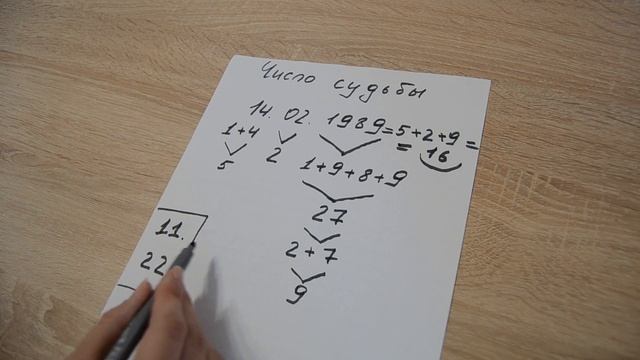 Число судьбы
14. 02. 1989=5+2+9=
1+4
= 16
5
2
1+9+8+9
27
2+7
9
11.
22